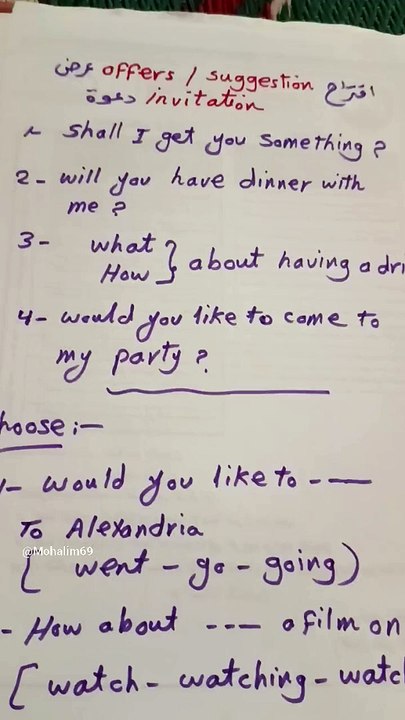 عرض offers / suggestion اقتراح
دعوة invitation
1- Shall I get you something?
2- will you have dinner with
me?
3- what
How } about having a dri
4- would you like to come to
my party?
hoose:-
1- would you like to ----
To Alexandria
@Mohalim69
( went - go - going)
- How about --- a film on
[ watch - watching - watc